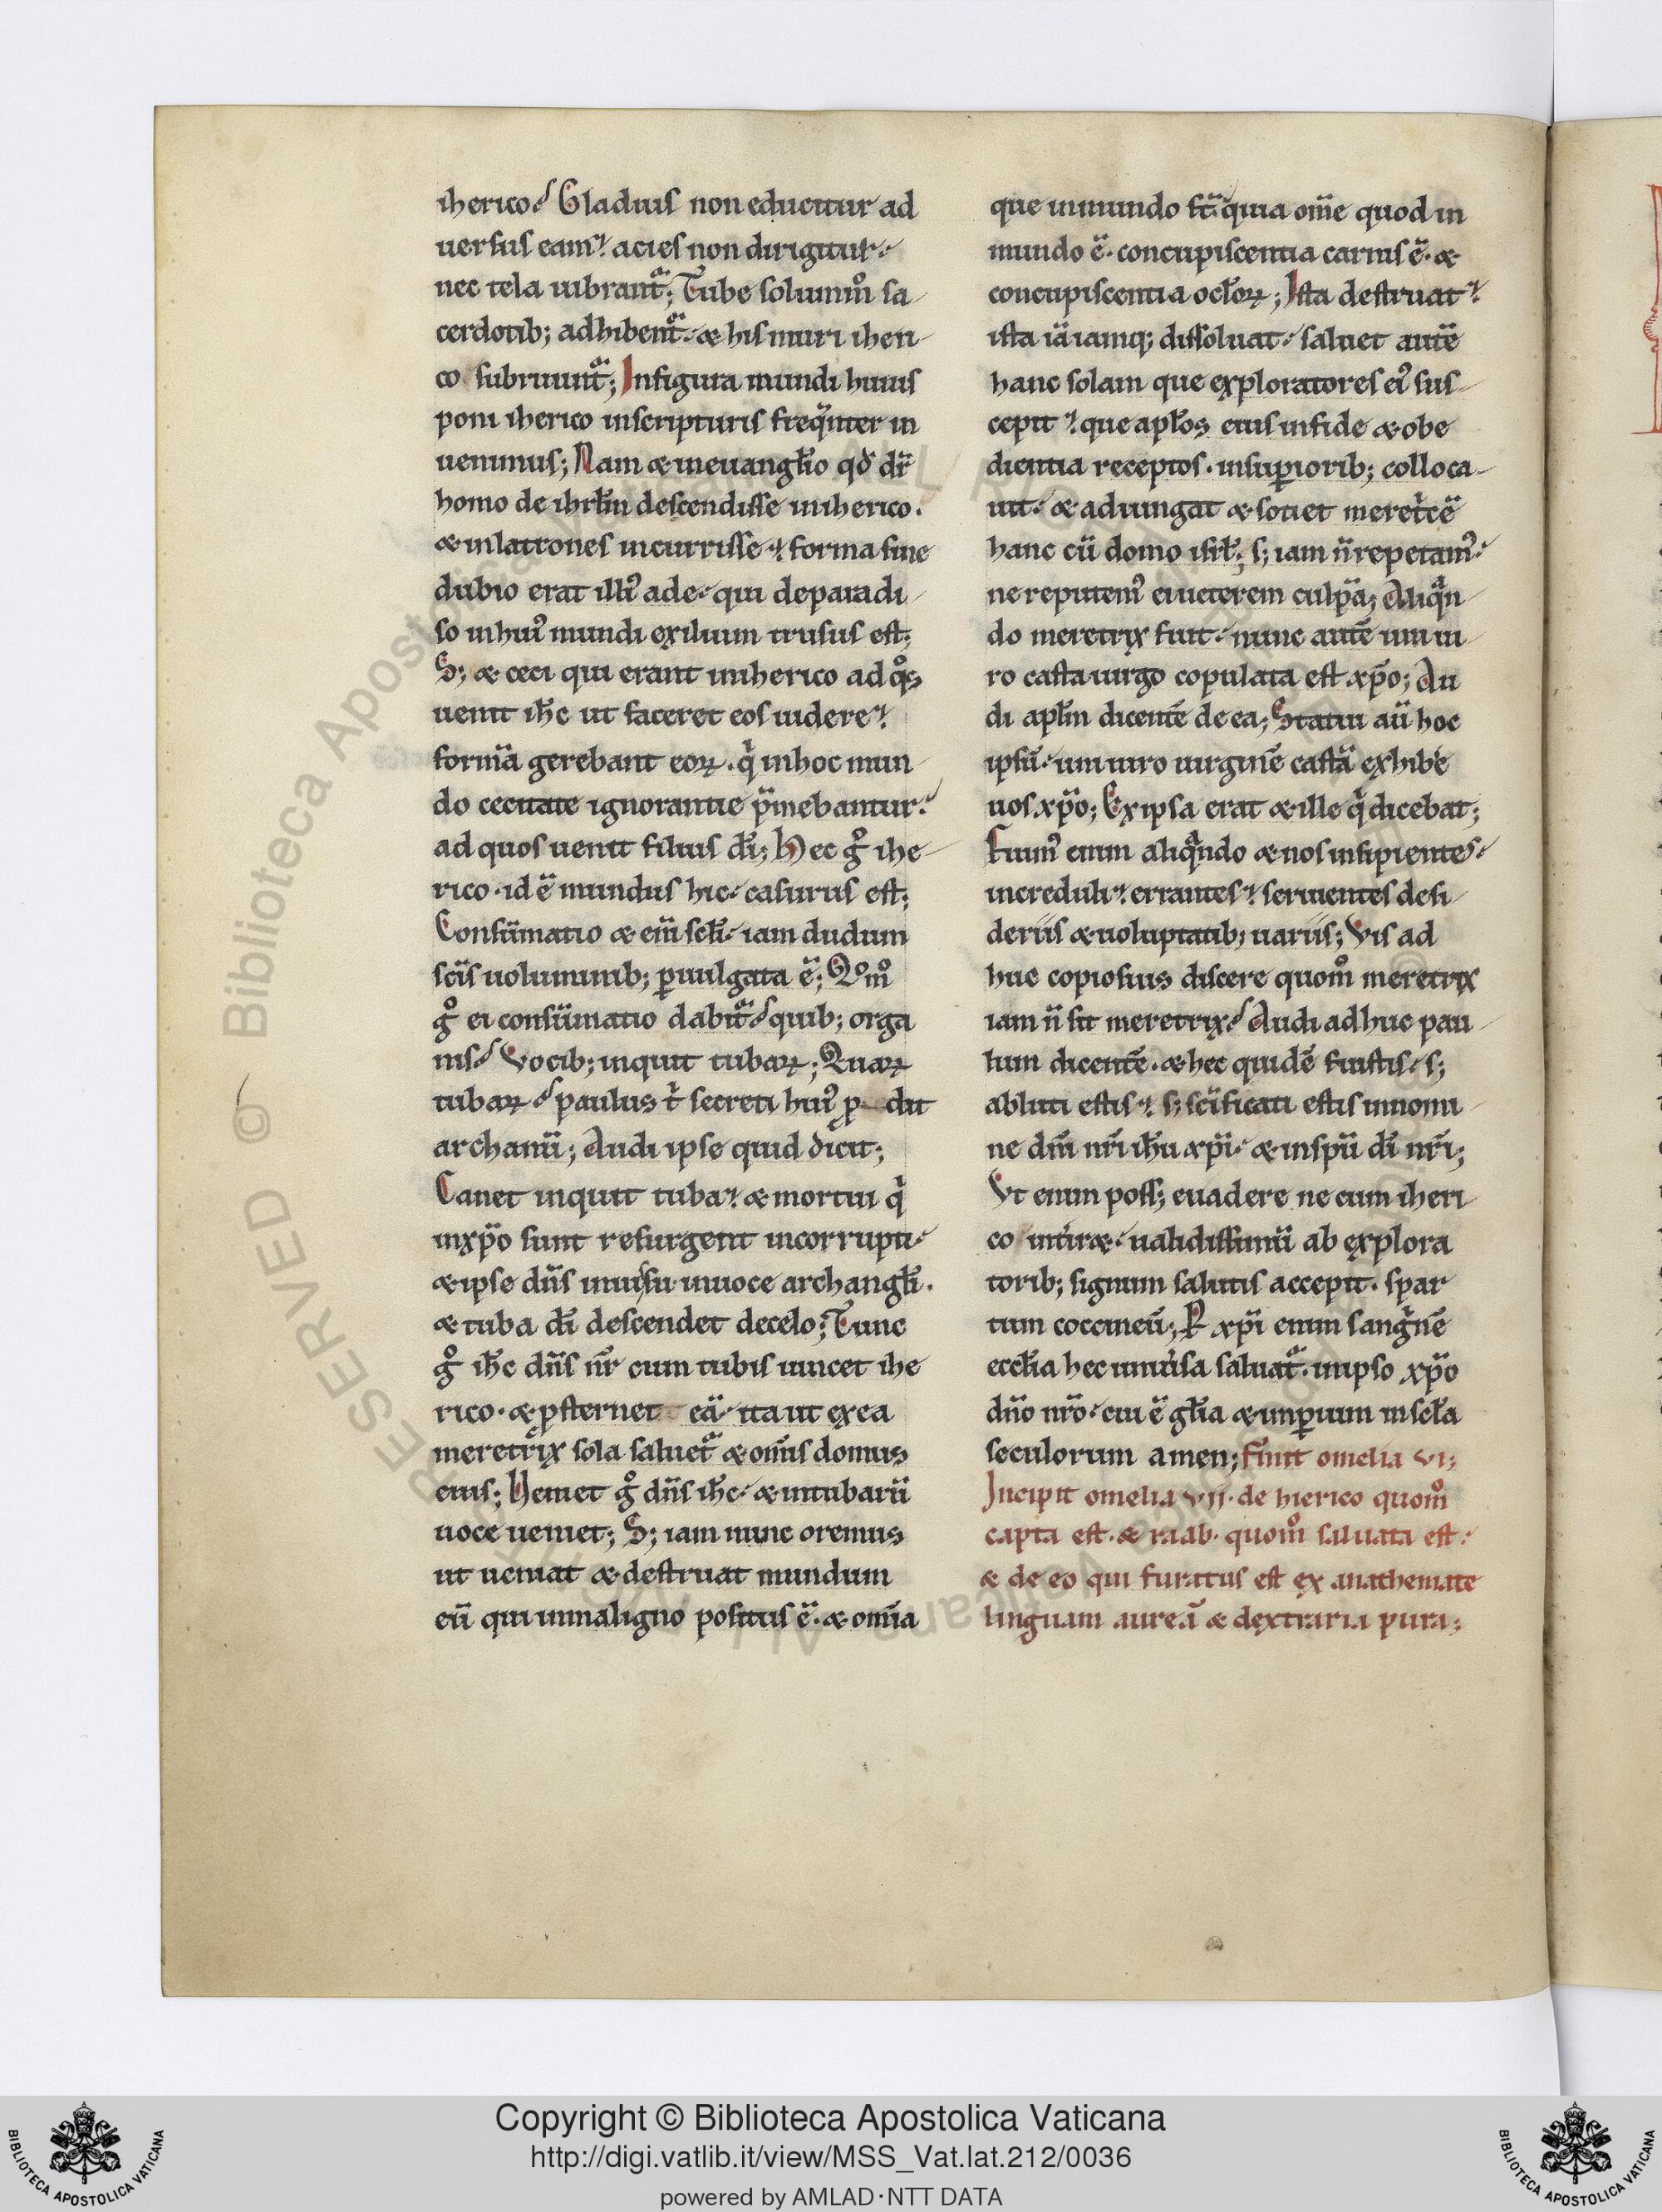 iherico? Gladius non educitur ad
uersus eam. acies non dirigitur.
nec tela uibrant᷑; Tube solummͦ sa-
cerdotib; adhibent᷑. & his muri iheri-
co subruunt᷑; In figura mundi huius
poni iherico in scripturis freq̄nter in
uenimus; Nam & in euanglīo qđ dr̄
homo de ihrlm̄ descendisse in iherico.
& in latrones incurrisse. forma sine
dubio erat illiꝰ ade. qui de paradi-
so in huiꝰ mundi exilium trusus est;
S; & ceci qui erant in iherico ad qͦs
uenit ihc̄ ut faceret eos uidere.
formā gerebant eoꝝ. qͥ in hoc mun-
do cecitate ignorantie p̄mebantur.
ad quos uenit filius dī; Hec gͦ ihe-
rico. id ē mundus hic. casurus est;
Consūmatio & enī sclī. iam dudum
scīs uoluminib; ꝑuulgata ē; Qͦmͦ
gͦ ei consūmatio dabit᷑? quib; orga
nis? Vocib; inquit tubaꝝ; Quaꝝ
tubaꝝ? paulus tͥ secreti huiꝰ p dit
archanū; Audi ipse quid dicit;
Canet inquit tuba. & mortui qͥ
in xp̄o sunt resurgent incorrupti.
& ipse dn̄s in iussu. in uoce archanglī.
& tuba dī descendet de celo; Tunc
gͦ ihc̄ dn̄s nr̄ cum tubis uincet ihe
rico. & ꝓsternet eā. ita ut ex ea
meretrix sola saluet᷑ & om̄is domus
eius; Veniet gͦ dn̄s ihc̄. & in tubarū
uoce ueniet; S; iam nunc oremus
ut ueniat & destruat mundum
eū qui in maligno positus ē. & om̄ia
que in mundo st̄. quia om̄e quod in
mundo ē. concupiscentia carnis ē. &
concupiscentia oclōꝝ; Ista destruat.
ista iā iamq; dissoluat. saluet autē
hanc solam que exploratores eiꝰ sus-
cepit. que aplōs eius in fide & obe
dientia receptos. in suꝑiorib; colloca-
uit. & adiungat & sotiet meretͥcē
hanc cū domo isrl̄; s; iam n̄ repetamꝰ.
ne reputemꝰ ei ueterem culpā; Aliqͣn-
do meretrix fuit. nunc autē uni ui-
ro casta uirgo copulata est xp̄o; Au
di aplm̄ dicentē de ea; Statui aū hoc
ipsū. uni uiro uirginē castā exhibe
uos xp̄o; Ex ipsa erat & ille qͥ dicebat;
Fuimꝰ enim aliqͣndo & nos insipientes.
increduli. errantes. seruientes desi-
deriis & uoluptatib; uariis; Vis ad
huc copiosius discere quomͦ meretrix
iam n̄ sit meretrix? Audi adhuc pau-
lum dicentē. & hec quidē fuistis. s;
abluti estis. s; scīficati estis in nomi-
ne dn̄i nr̄i ihū xp̄i. & in spū dī nr̄i;
Vt enim poss; euadere ne cum iheri-
co intͥr&. ualidissimū ab explora
torib; signum salutis accepit. spar
tum coccineū; Ꝑ xp̄i enim sangͥnē
ecclīa hec uniūsa saluat᷑. in ipso xp̄o
dn̄o nr̄o. cui ē glīa & imꝑium in sclā
seculorum amen; Finit omelia VI;
Incipit omelia VII. de hierico quomͦ
capta est. & raab. quomͦ saluata est.
& de eo qui furatus est ex anathemate
linguam aureā & dextraria pura;
Copyright © Biblioteca Apostolica Vaticana
http://digi.vatlib.it/view/MSS_Vat.lat.212/0036
powered by AMLAD·NTT DATA
BIBLIOTECA APOSTOLICA VATICANA
BIBLIOTECA APOSTOLICA VATICANA